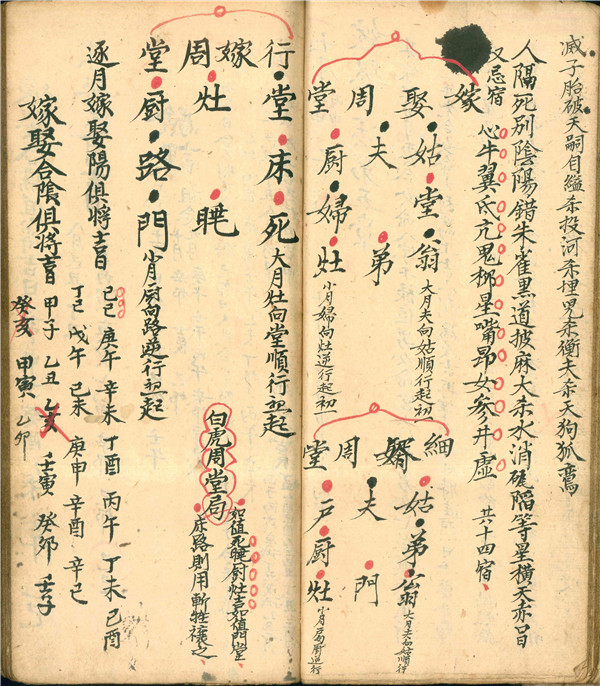 滅子胎破天嗣自縊杀投河杀埋児杀衡夫杀天狗狐鸞
人隔死別陰陽錯朱雀黒道披麻大杀水消砖陷等星橫天赤口
又忌宿 心牛翼氐亢鬼柳星嘴昴女參井虛 共十四宿
嫁娶周堂
姑堂翁
夫弟
廚婦灶
大月夫向姑順行起初一
小月婦向灶逆行起初一
細婿周堂
姑弟翁
夫門
戶廚灶
大月夫姑順行
小月戶廚逆行
行嫁周堂
堂床死
灶
廚路門
大月灶向堂順行初一起
小月廚向路逆行初一起
白虎周堂局
如值死睡廚灶吉如值門堂
床路則用斬牲禳之
逐月嫁娶陽俱將吉
己巳 庚午 辛未 丁酉 丙午 丁未 己酉
丁巳 戊午 己未 庚申 辛酉 辛巳
嫁娶合陰俱將吉
甲子 乙丑 乙亥 壬寅 癸卯 壬子
癸亥 甲寅 乙卯